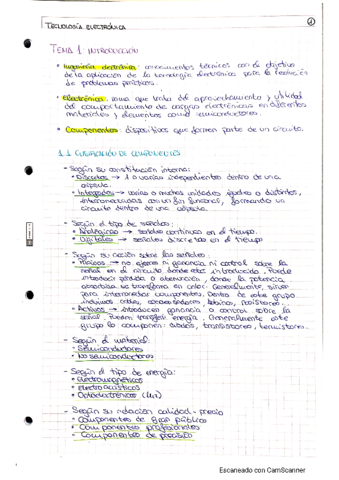 TECNOLOGÍA ELECTRÓNICA
1
TEMA 1: INTRODUCCIÓN
• Ingeniería electrónica: conocimientos técnicos con el objetivo
de la aplicación de la tecnología electrónica para la resolución
de problemas prácticos.
• Electrónica: rama que trata del aprovechamiento y utilidad
del comportamiento de cargas electrónicas en diferentes
materiales y elementos como semiconductores.
• Componentes: dispositivos que forman parte de un circuito.
1.1 CLASIFICACIÓN DE COMPONENTES
- Según su constitución interna:
• Discretos → 1 o varios independientes dentro de una
cápsula.
• Integrados → varias o muchas unidades iguales o distintas,
interconectadas con un fin funcional, formando un
circuito dentro de una cápsula.
- Según el tipo de señales:
• Analógicas → señales continuas en el tiempo.
• Digitales → señales discretas en el tiempo
- Según su acción sobre las señales:
• Pasivos → no ejerce ni ganancia ni control sobre la
señal en el circuito donde está introducido. Puede
introducir pérdida o atenuación, donde la potencia
se transforma en calor. Generalmente, sirven
para interconectar componentes. Dentro de este grupo
cables, condensadores, bobinas, resistencias...
• Activos → introducen ganancia o control sobre la
señal. Pueden transferir energía. Generalmente este
grupo lo componen: diodos, transistores, termistores.
- Según el material:
• Semiconductores
• No semiconductores
- Según el tipo de energía:
• Electromagnéticos
• Electroacústicos
• Optoelectrónicos
- Según su relación calidad - precio
• Componentes de gran público
• Componentes profesionales
• Componentes de
Escaneado con CamScanner